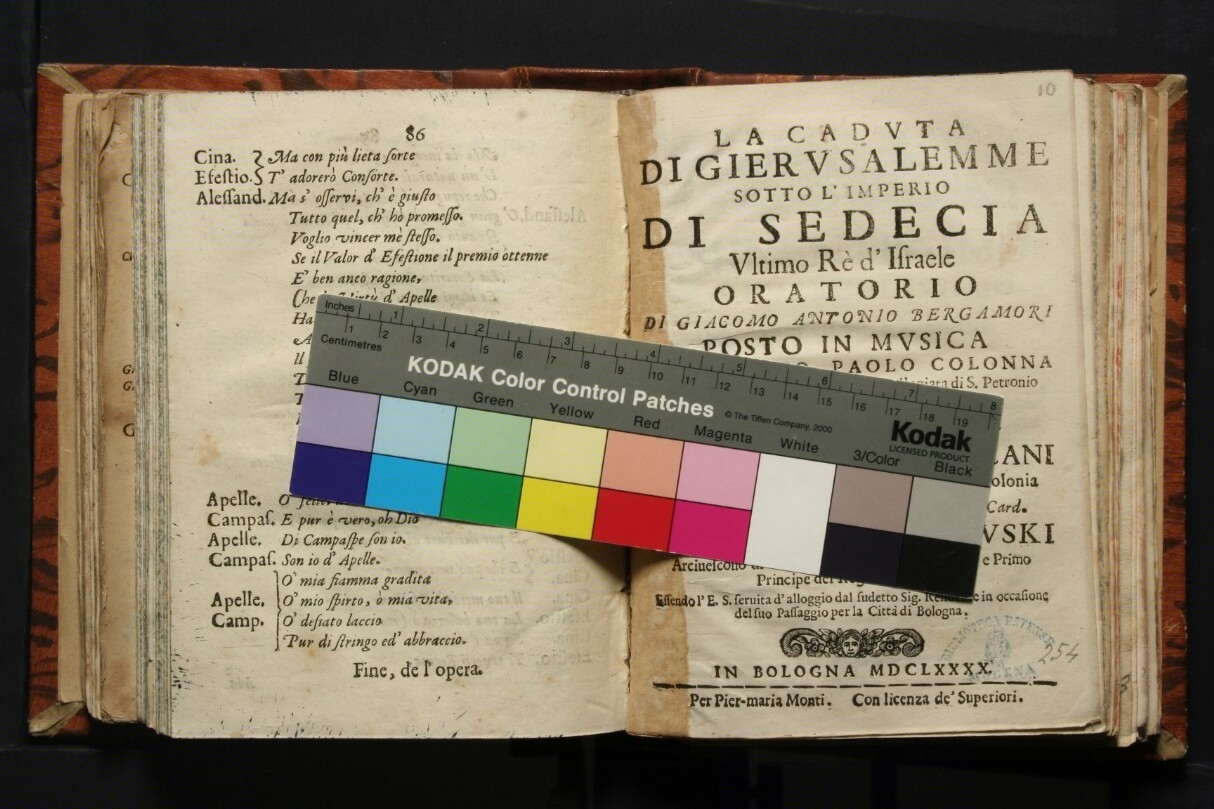 86
Cina. Ma con più lieta sorte
Efestio. T' adorerò Consorte.
Alessand. Ma s' osservi, ch' è giusto
Tutto quel, ch' hò promesso.
Voglio vincer mè stesso.
Se il Valor d' Efestione il premio ottenne
E' ben anco ragione,
d' Apelle
Apelle. O
Campas. E pur è vero, oh Dio
Apelle. Di Campaspe son io.
Campas. Son io d' Apelle.
O' mia fiamma gradita
Apelle. O' mio spirto, ò mia vita,
Camp. O' desiato laccio
Pur di stringo ed' abbraccio.
Fine, de l'opera.
10
LA CADVTA
DI GIERVSALEMME
SOTTO L' IMPERIO
DI SEDECIA
Vltimo Rè d' Israele
ORATORIO
DI GIACOMO ANTONIO BERGAMORI
POSTO IN MVSICA
PAOLO COLONNA
di S. Petronio
ANI
olonia
Card.
VSKI
e Primo
Principe del
Essendo l' E. S. seruita d' alloggio dal sudetto Sig. in occasione
del suo Passaggio per la Città di Bologna.
IN BOLOGNA MDCLXXXX
Per Pier-maria Monti. Con licenza de' Superiori.
BIBLIOTECA ESTENSE
254
Inches 1 2 3 4 5 6 7 8
Centimetres 1 2 3 4 5 6 7 8 9 10 11 12 13 14 15 16 17 18 19
KODAK Color Control Patches © The Tiffen Company, 2000
Kodak
LICENSED PRODUCT
Blue Cyan Green Yellow Red Magenta White 3/Color Black